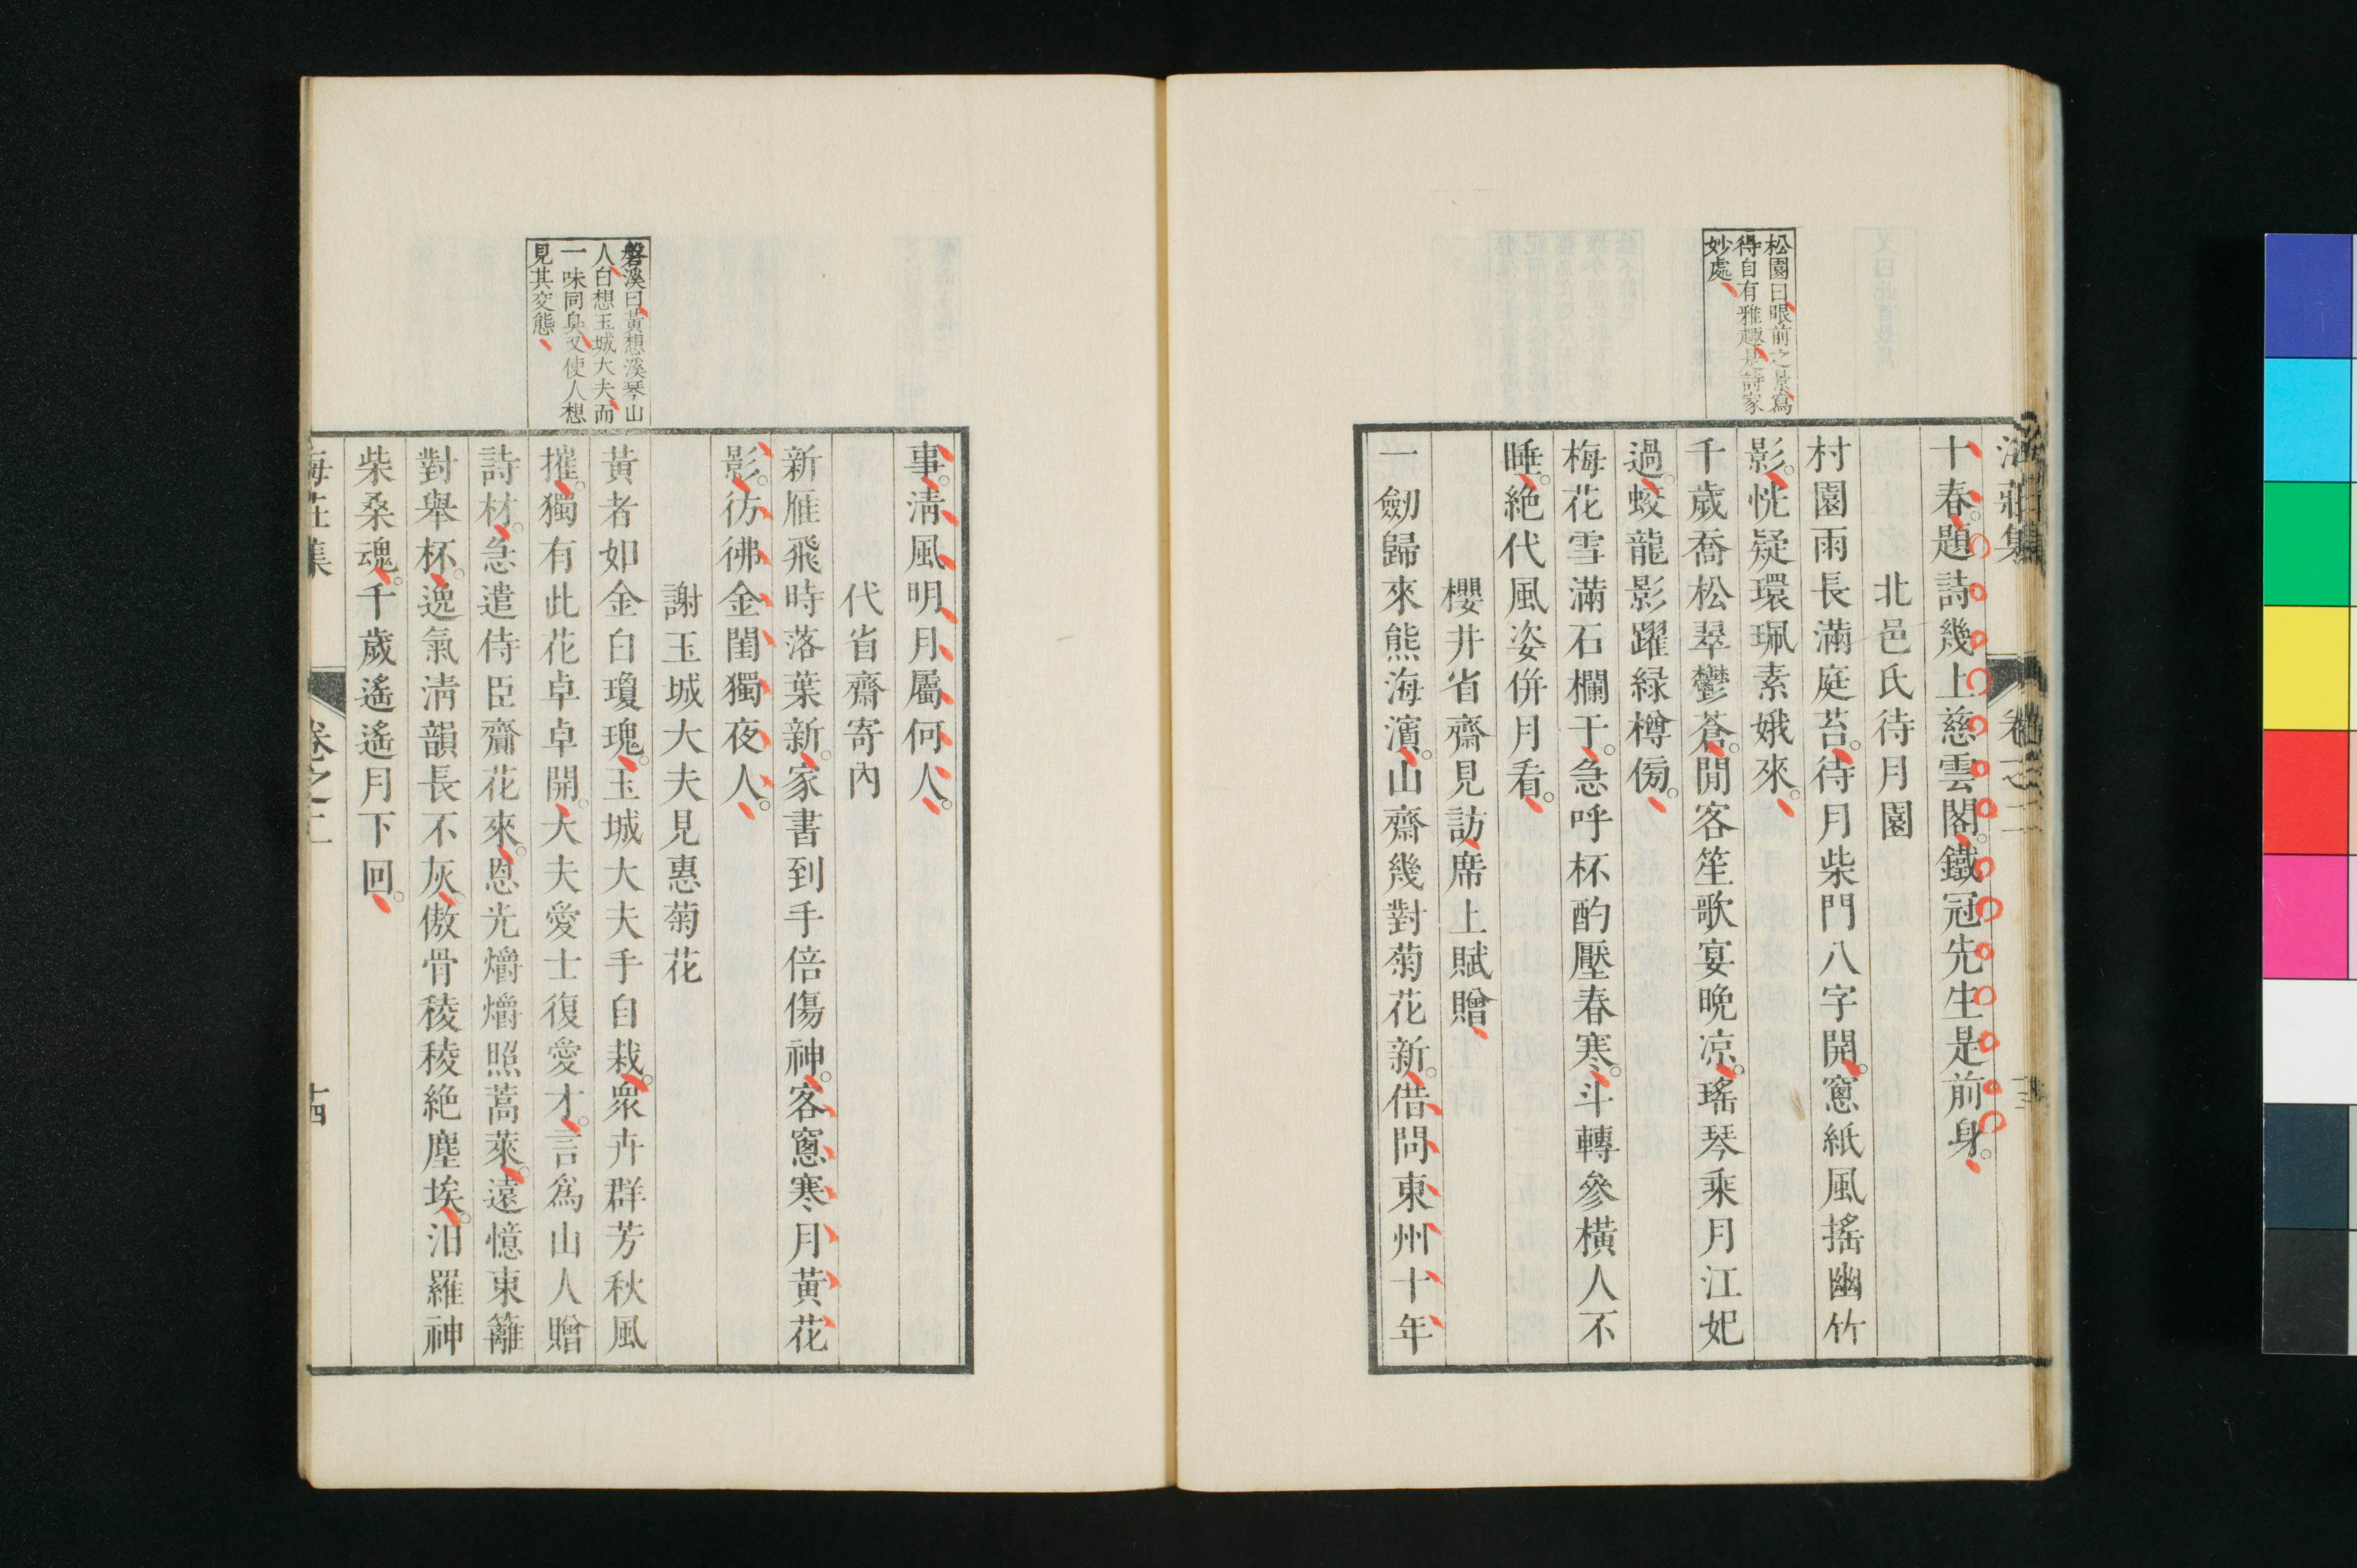 松園曰眼前之景寫
得自有雅趣是詩家
妙處
十春。題詩幾上慈雲閣。鐵冠先生是前身。
北邑氏待月園
村園雨長滿庭苔。待月柴門八字開。窻紙風搖幽竹
影。恍疑環珮素娥來。
千歲喬松翠鬱蒼。閒客笙歌宴晩凉。瑤琴乘月江妃
過。蛟龍影躍緑樽傍。
梅花雪滿石欄干。急呼杯酌壓春寒。斗轉參橫人不
睡。絶代風姿併月看。
櫻井省齋見訪席上賦贈
一劒歸來熊海濵。山齋幾對菊花新。借問東州十年
磐溪曰黃想溪琴山
人白想玉城大夫而
一味同臭又使人想
見其交態
事。淸風明月屬何人。
代省齋寄內
新雁飛時落葉新。家書到手倍傷神。客窻寒月黃花
影。彷彿金閨獨夜人。
謝玉城大夫見惠菊花
黃者如金白瓊瑰。玉城大夫手自栽。衆卉群芳秋風
摧。獨有此花卓卓開。大夫愛士復愛才。言爲山人贈
詩材。急遣侍臣齎花來。恩光爝爝照蒿萊。遠憶東籬
對舉杯。逸氣淸韻長不灰。傲骨稜稜絶塵埃。汨羅神
柴桑魂。千歲遙遙月下回。
海莊集
卷之二
十四